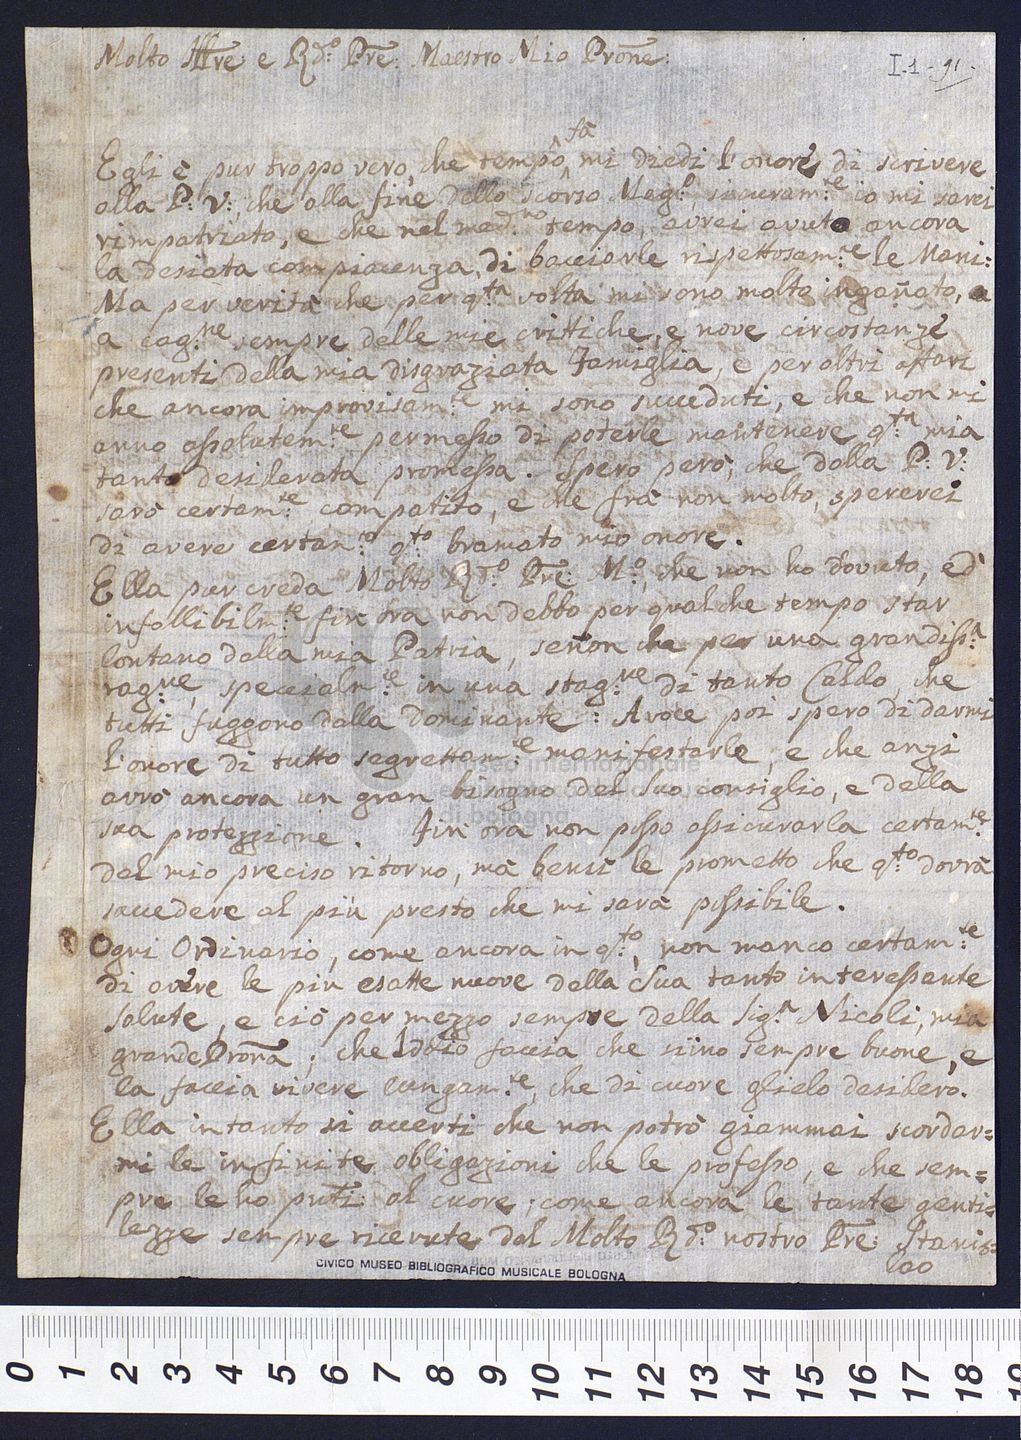 Molto Illre e Rdo: Pre: Maestro Mio Prone:
I.1-91-
fà
Egli è pur troppo vero, che tempô, mi diedi l'onore di scrivere
alla P: V:, che alla fine dello scorso Mago: sicuram:te io mi sarei
rimpatriato, e che nel med:mo tempo, avrei avuto ancora
la desiata compiacenza, di bacciarle rispettosam:te le Mani:
Ma per verità che per q:ta volta mi sono molto ingañato,
a cag:ne sempre delle mie crittiche, e nove circostanze
presenti della mia disgraziata Famiglia, e per altri affari
che ancora improvisam:te mi sono succeduti, e che non mi
anno assolutem:te permesso di poterle mantenere q:ta mia
tanto desiderata promessa. Spero però, che dalla P: V:
sarò certam:te compatito, e che frà non molto, spererei
di avere certam:te q:to bramato mio onore.
Ella pur creda Molto Rdo: Pre: Mo:, che non ho dovuto, ed
infallibilm:te fin ora non debbo per qualche tempo star
lontano dalla mia Patria, señon che per una grandiss:a
rag:ne, specialm:te in una stag:ne di tanto Caldo, che
tutti fuggono dalla Dominante: A voce poi spero di darmi
l'onore di tutto segrettam:te manifestarle, e che anzi
avrò ancora un gran bisogno del suo consiglio, e della
sua protezzione. Fin ora non posso assicurarla certam:te
del mio preciso ritorno, mà bensì le prometto che q:to dovrà
succedere al più presto che mi sarà possibile.
Ogni Ordinario, come ancora in q:to, non manco certam:te
di avere le più esatte nuove della Sua tanto interessante
salute, e ciò per mezzo sempre della Sig:a Nicoli, mia
grande Proña; che Iddio faccia che siino sempre buone, e
la faccia vivere lungam:te, che di cuore glielo desidero.
Ella intanto si accerti che non potrò giammai scordar=
mi le infinite obligazioni che le professo, e che sem=
pre le ho pnti: al cuore; come ancora le tante genti=
lezze sempre ricevute dal Molto Rdo: nostro Pre: Stanis=
lao
museo internazionale
di bologna
CIVICO MUSEO BIBLIOGRAFICO MUSICALE BOLOGNA
0 1 2 3 4 5 6 7 8 9 10 11 12 13 14 15 16 17 18